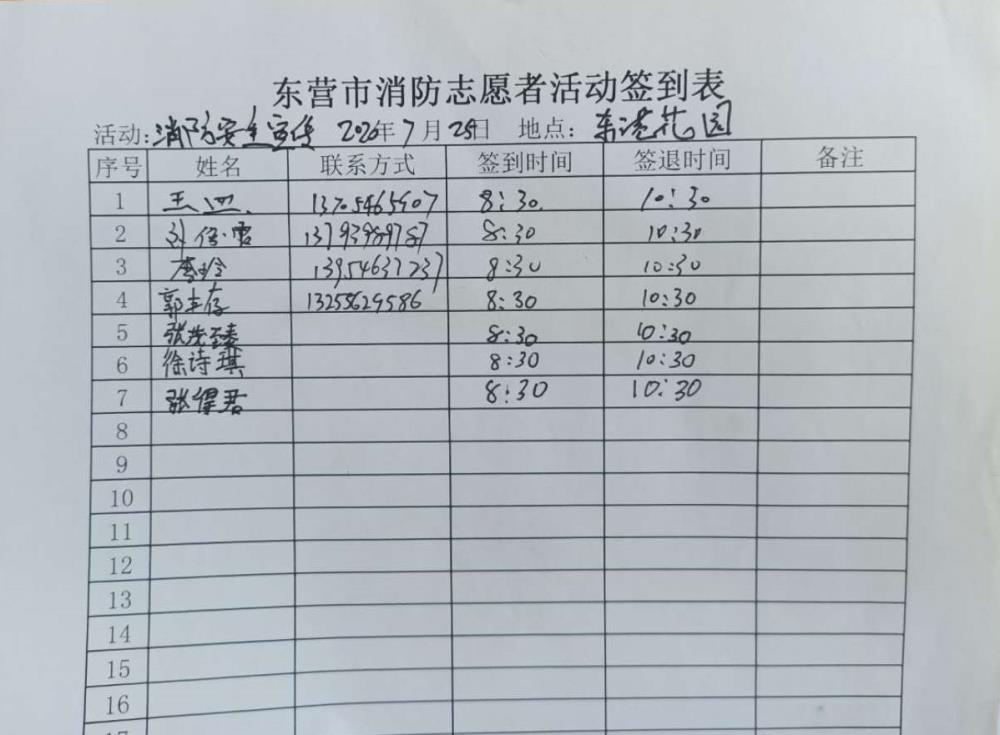 东营市消防志愿者活动签到表
活动:消防安全宣传 2020年7月25日 地点:东港花园
序号 姓名 联系方式 签到时间 签退时间 备注
1 王 13705465907 8:30 10:30
2 刘 13793989787 8:30 10:30
3 李玲 13954637237 8:30 10:30
4 郭丰存 13255629586 8:30 10:30
5 张茂臻 8:30 10:30
6 徐诗琪 8:30 10:30
7 张倬君 8:30 10:30
8
9
10
11
12
13
14
15
16